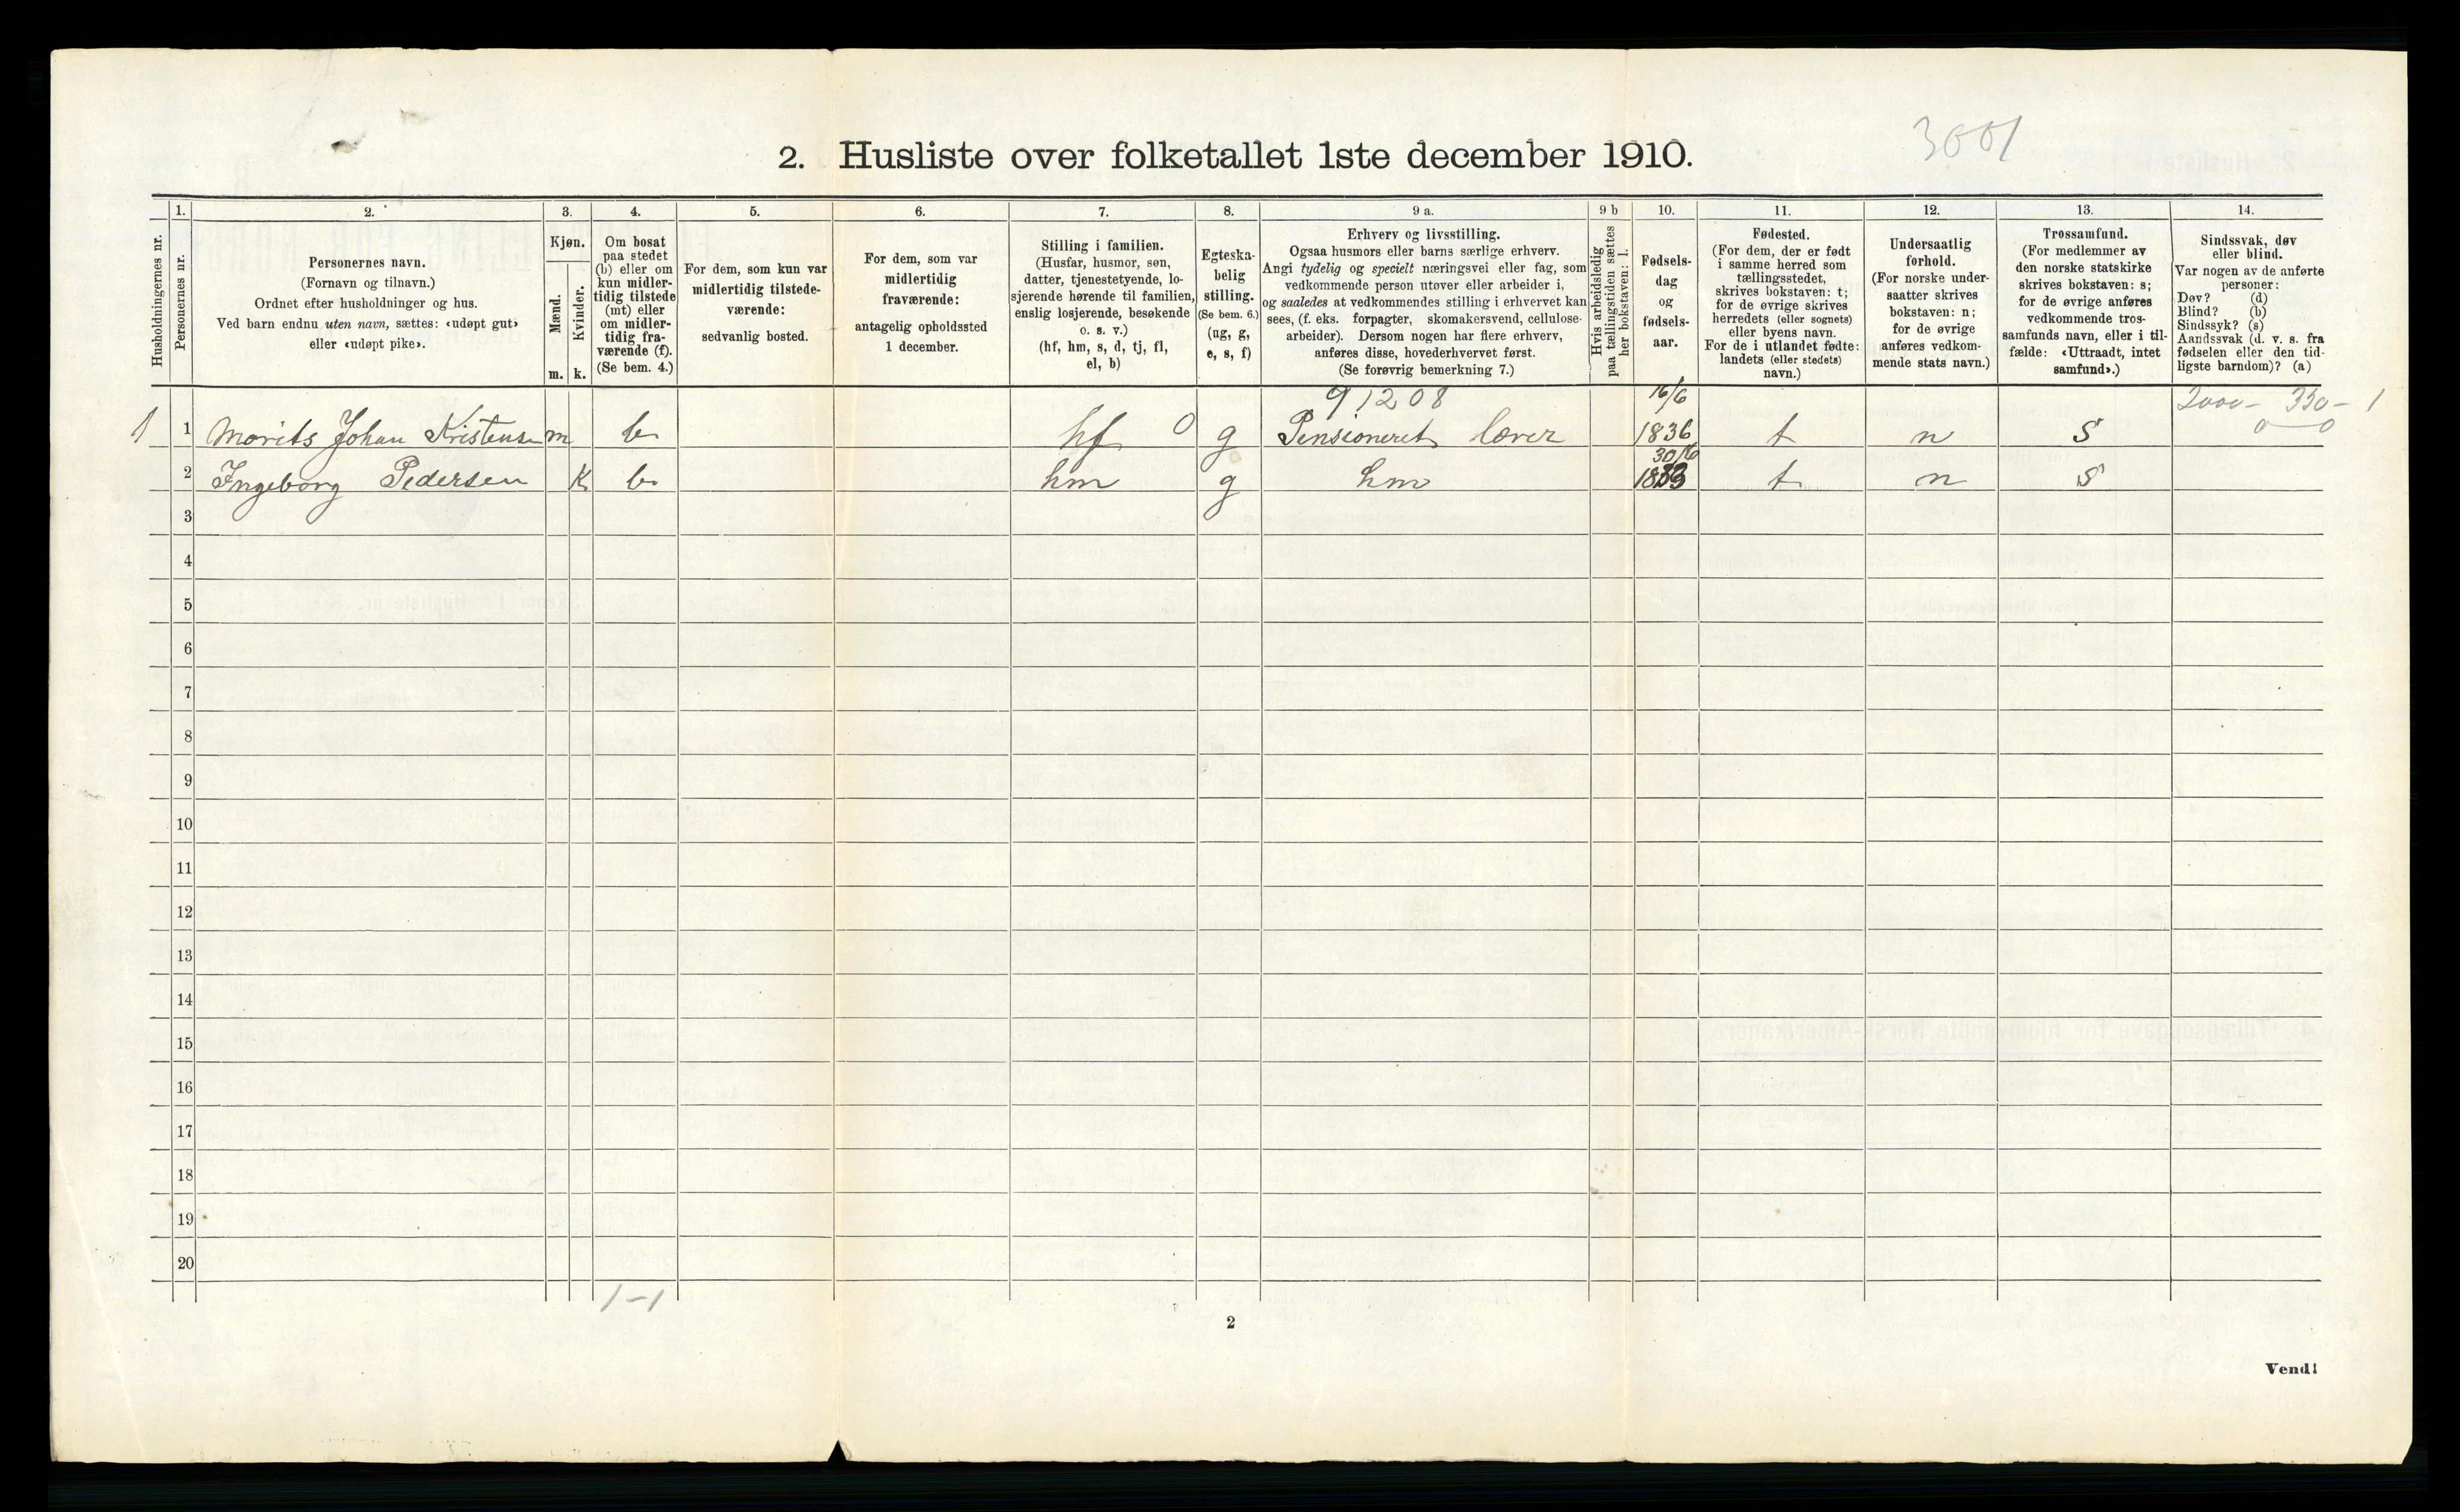 3001
2. Husliste over folketallet 1ste december 1910.
Husholdningernes nr.
1.
Personernes nr.
2.
Personernes navn.
(Fornavn og tilnavn.)
Ordnet efter husholdninger og hus.
Ved barn endnu uten navn, sættes: «udøpt gut»
eller «udøpt pike».
3.
Kjøn.
Mænd.
Kvinder.
m. k.
4.
Om bosat
paa stedet
(b) eller om
kun midler-
tidig tilstede
(mt) eller
om midler-
tidig fra-
værende (f).
(Se bem. 4.)
5.
For dem, som kun var
midlertidig tilstede-
værende:
sedvanlig bosted.
6.
For dem, som var
midlertidig
fraværende:
antagelig opholdssted
1 december.
7.
Stilling i familien.
(Husfar, husmor, søn,
datter, tjenestetyende, lo-
sjerende hørende til familien,
enslig losjerende, besøkende
o. s. v.)
(hf, hm, s, d, tj, fl,
el, b)
8.
Egteska-
belig
stilling.
(Se bem. 6.)
(ug, g,
e, s, f)
9 a.
Erhverv og livsstilling.
Ogsaa husmors eller barns særlige erhverv.
Angi tydelig og specielt næringsvei eller fag, som
vedkommende person utøver eller arbeider i,
og saaledes at vedkommendes stilling i erhvervet kan
sees, (f. eks. forpagter, skomakersvend, cellulose-
arbeider). Dersom nogen har flere erhverv,
anføres disse, hovederhvervet først.
(Se forøvrig bemerkning 7.)
9 b
Hvis arbeidsledig
paa tællingstiden sættes
her bokstaven: l.
10.
Fødsels-
dag
og
fødsels-
aar.
11.
Fødested.
(For dem, der er født
i samme herred som
tællingsstedet,
skrives bokstaven: t;
for de øvrige skrives
herredets (eller sognets)
eller byens navn.
For de i utlandet fødte:
landets (eller stedets)
navn.)
12.
Undersaatlig
forhold.
(For norske under-
saatter skrives
bokstaven: n;
for de øvrige
anføres vedkom-
mende stats navn.)
13.
Trossamfund.
(For medlemmer av
den norske statskirke
skrives bokstaven: s;
for de øvrige anføres
vedkommende tros-
samfunds navn, eller i til-
fælde: «Uttraadt, intet
samfund».)
14.
Sindssvak, døv
eller blind.
Var nogen av de anførte
personer:
Døv? (d)
Blind? (b)
Sindssyk? (s)
Aandssvak (d. v. s. fra
fødselen eller den tid-
ligste barndom)? (a)
91208 16/6 2000 - 350 - 1
1 1 Morits Johan Kristensen m b hf 0 g Pensioneret lærer 1836 t n s 0 0
2 Ingeborg Pedersen k b hm g hm t n s
3
4
5
6
7
8
9
10
11
12
13
14
15
16
17
18
19
20
1-1
2
Vend!